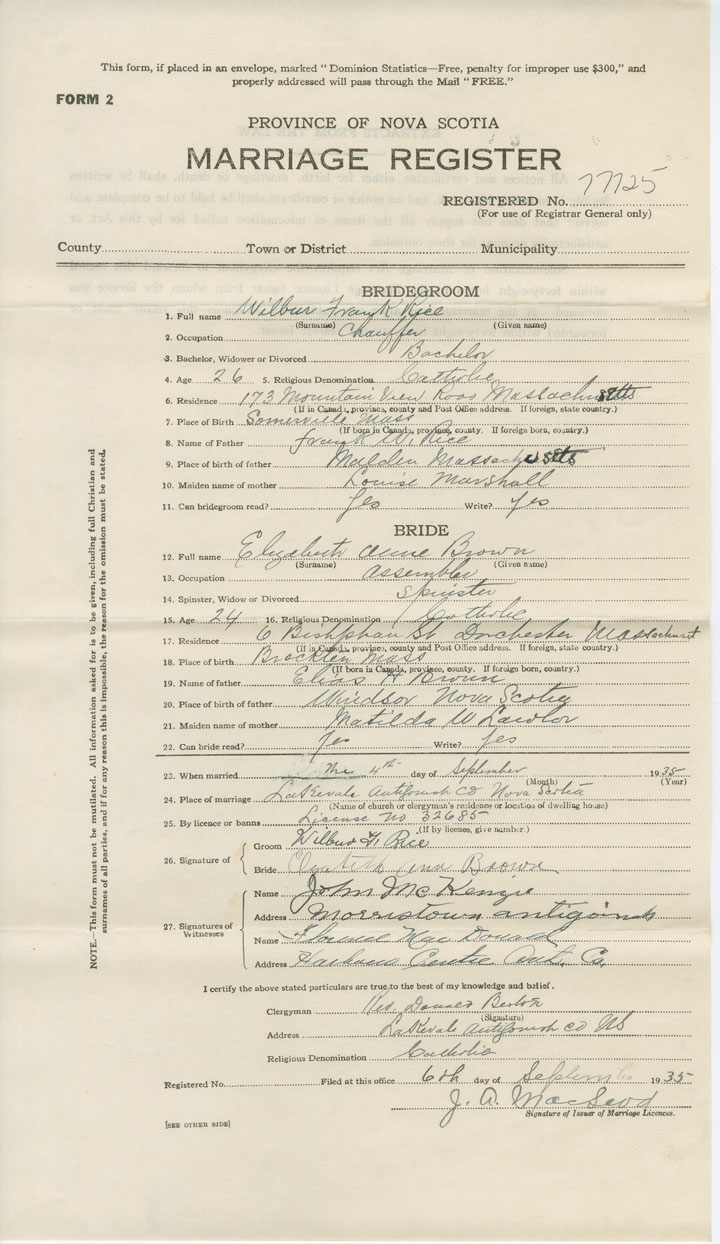 This form, if placed in an envelope, marked "Dominion Statistics—Free, penalty for improper use $300," and
properly addressed will pass through the Mail "FREE."
FORM 2
PROVINCE OF NOVA SCOTIA
MARRIAGE REGISTER
REGISTERED No. 77725
(For use of Registrar General only)
County Town or District Municipality
BRIDEGROOM
1. Full name Wilbur Frank Rice
(Surname) (Given name)
2. Occupation Chauffer
3. Bachelor, Widower or Divorced Bachelor
4. Age 26 5. Religious Denomination Catholic
6. Residence 173 Mountain View Massachusetts
(If in Canada, province, county and Post Office address. If foreign, state country.)
7. Place of Birth Somerville Mass
(If born in Canada, province, county. If foreign born, country.)
8. Name of Father Frank W. Rice
9. Place of birth of father Malden Massachusetts
10. Maiden name of mother Louise Marshall
11. Can bridegroom read? Yes Write? Yes
BRIDE
12. Full name Elizabeth Anne Brown
(Surname) (Given name)
13. Occupation Assembler
14. Spinster, Widow or Divorced Spinster
15. Age 24 16. Religious Denomination Catholic
17. Residence 6 St Dorchester Massachuset
(If in Canada, province, county and Post Office address. If foreign, state country.)
18. Place of birth Brockton Mass
(If born in Canada, province, county. If foreign born, country.)
19. Name of father Elias H Brown
20. Place of birth of father Windsor Nova Scotia
21. Maiden name of mother Matilda W Lawlor
22. Can bride read? Yes Write? Yes
23. When married the 4th day of September 1935
(Month) (Year)
24. Place of marriage Lakevale Antigonish Co Nova Scotia
(Name of church or clergyman's residence or location of dwelling house)
25. By licence or banns License no 32685
(If by licence, give number.)
26. Signature of Groom Wilbur F. Rice
Bride Elizabeth Ann Brown
27. Signatures of Witnesses
Name John McKenzie
Address Morristown Antigonish
Name Florence MacDonald
Address Harbour Centre Ant. Co.
I certify the above stated particulars are true to the best of my knowledge and belief.
Clergyman Rev. Donald
(Signature)
Address Lakevale Antigonish Co NS
Religious Denomination Catholic
Registered No. Filed at this office 6th day of September 1935
J. A. MacLeod
Signature of Issuer of Marriage Licences.
[SEE OTHER SIDE]
NOTE.—This form must not be mutilated. All information asked for is to be given, including full Christian and
surnames of all parties, and if for any reason this is impossible, the reason for the omission must be stated.